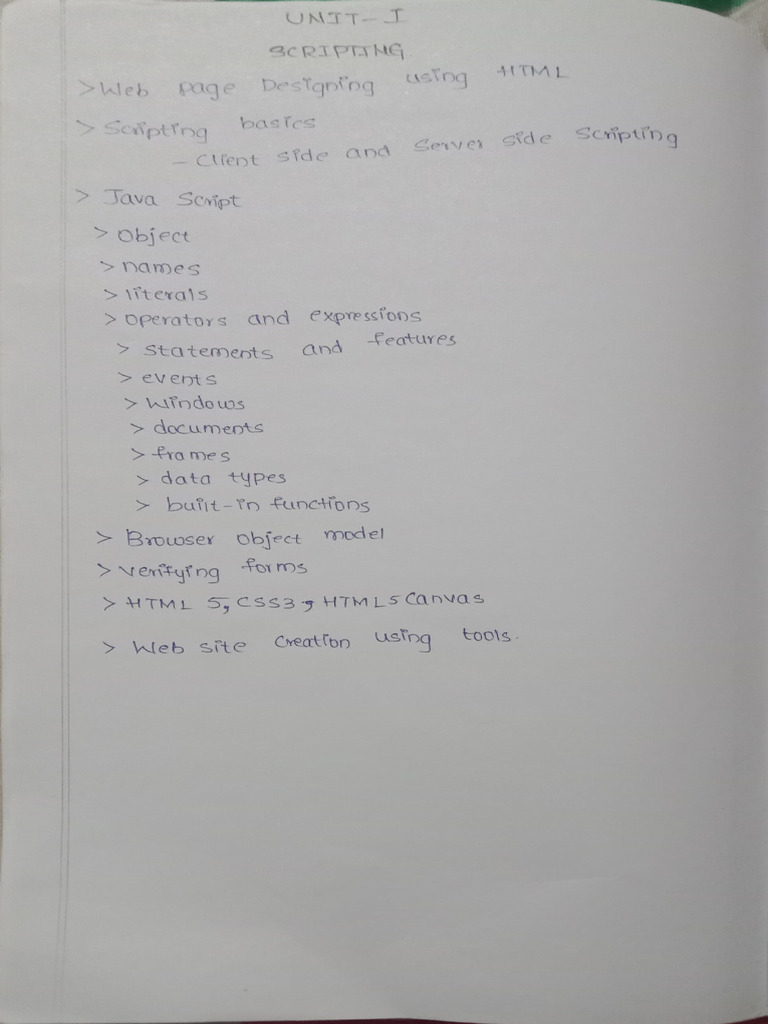 UNIT-I
SCRIPTING
>Web page Designing using HTML
> Scripting basics
- Client side and Server side Scripting
> Java Script
> Object
> names
> literals
> operators and expressions
> statements and features
> events
> Windows
> documents
> frames
> data types
> built-in functions
> Browser object model
> verifying forms
> HTML 5, CSS3, HTML5 Canvas
> Web site Creation using tools.